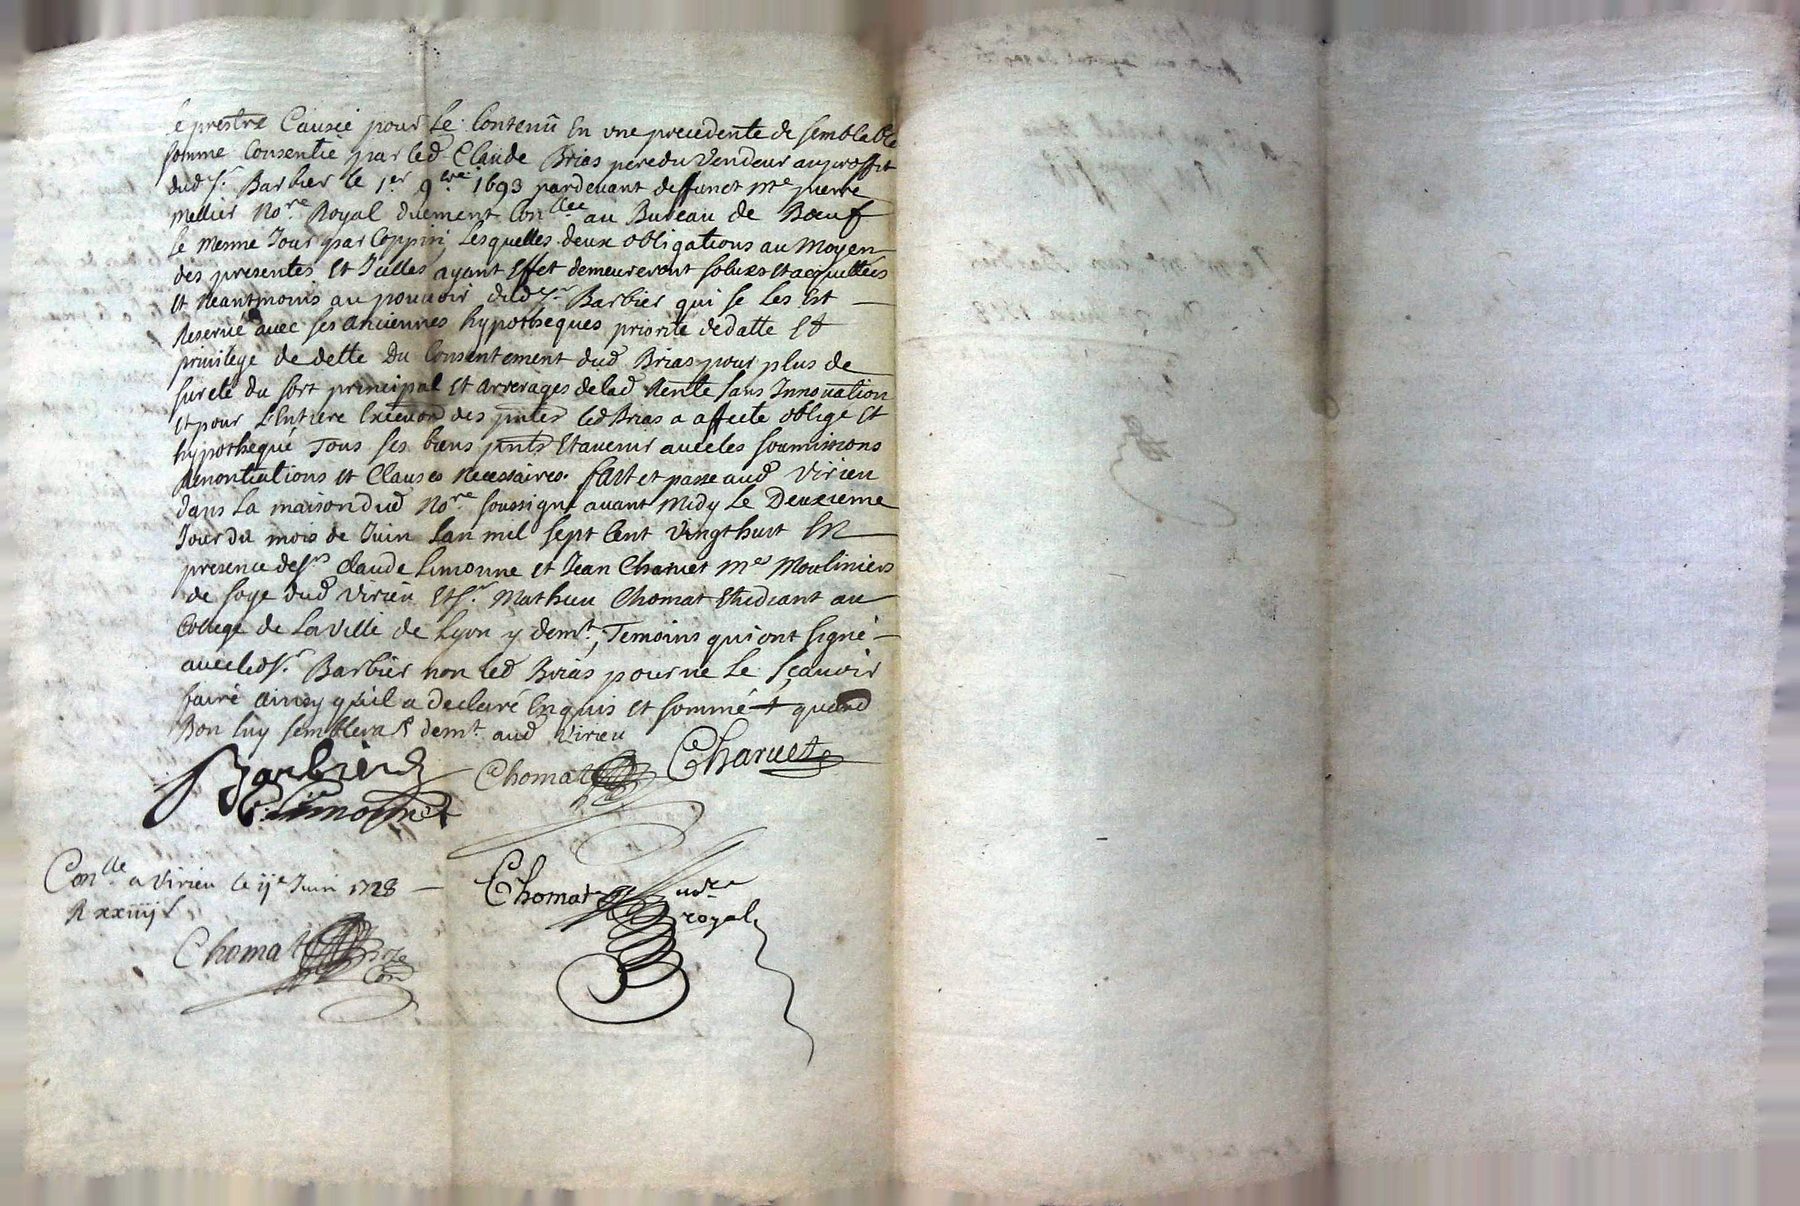 le prestre Causée pour Le Contenu En une precedente de semblable
somme Consentie par led Claude Brias pere du Vendeur au proffit
dud Sr. Barbier le 1er 9bre 1693 pardevant deffunct me pierre
mellier Nore Royal duement Conllée au Bureau de Bœuf
Le Mesme Jour par Coppin Lesquelles deux obligations au Moyen
des presentes Et Icelles ayant Effet demeureront solues Et acquittées
Et Neantmoins au pouvoir dud Sr Barbier qui se Les Est
Reservé avec ses anciennes hypotheques priorité de datte Et
privilege de dette Du Consentement dud Brias pour plus de
sureté du sort principal Et arrerages de lad Rente sans Innovation
Et pour L'Entiere Exécuon des pntes led Brias a affecté obligé Et
hypothequé Tous ses biens pnts Et avenir avec les soumissions
Renontiations Et Clauses Necessaires. fait et passé aud Virieu
dans La maison dud Nore soussigné avant Midy Le Deuxieme
Jour du mois de Juin Lan mil sept Cent Vingt huit En
presence de Srs Claude Limonne et Jean Charvet mes Mouliniers
de soye dud Virieu Et Sr. Mathieu Chomat Etudiant au
College de La Ville de Lyon y demt. Temoins qui ont signé
avec led Sr. Barbier non led Brias pour ne Le sçavoir
faire ainsy qu'il a declaré Enquis et sommé + quand
Bon luy semblera & demt. aud Virieu
Barbier
Chomat
Charvet
C. Limonne
Conlle a Virieu le 11e Juin 1728
R xxiiij s
Chomat
Chomat nore
royal